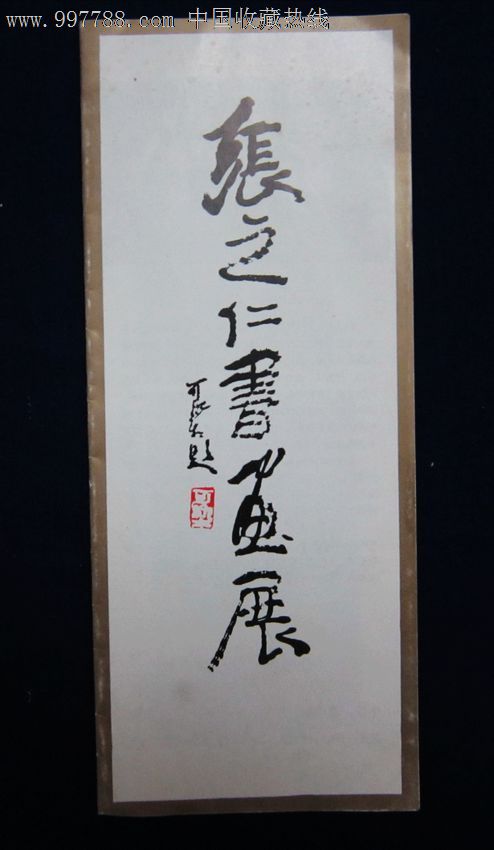 www.997788.com 中国收藏热线
張之仁書畫展
可染題